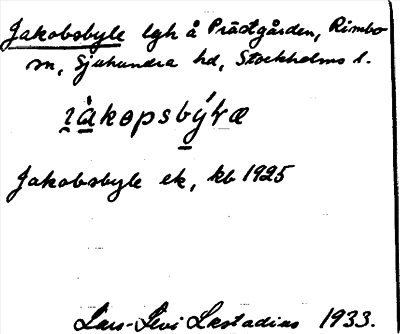 Jakobsbyle lgh å Prästgården, Rimbo
sn, Sjuhundra hd, Stockholms l.
ɪ̯àkɵpsbýɽæ
Jakobsbyle ek, kb 1925
Lars-Levi Læstadius 1933.